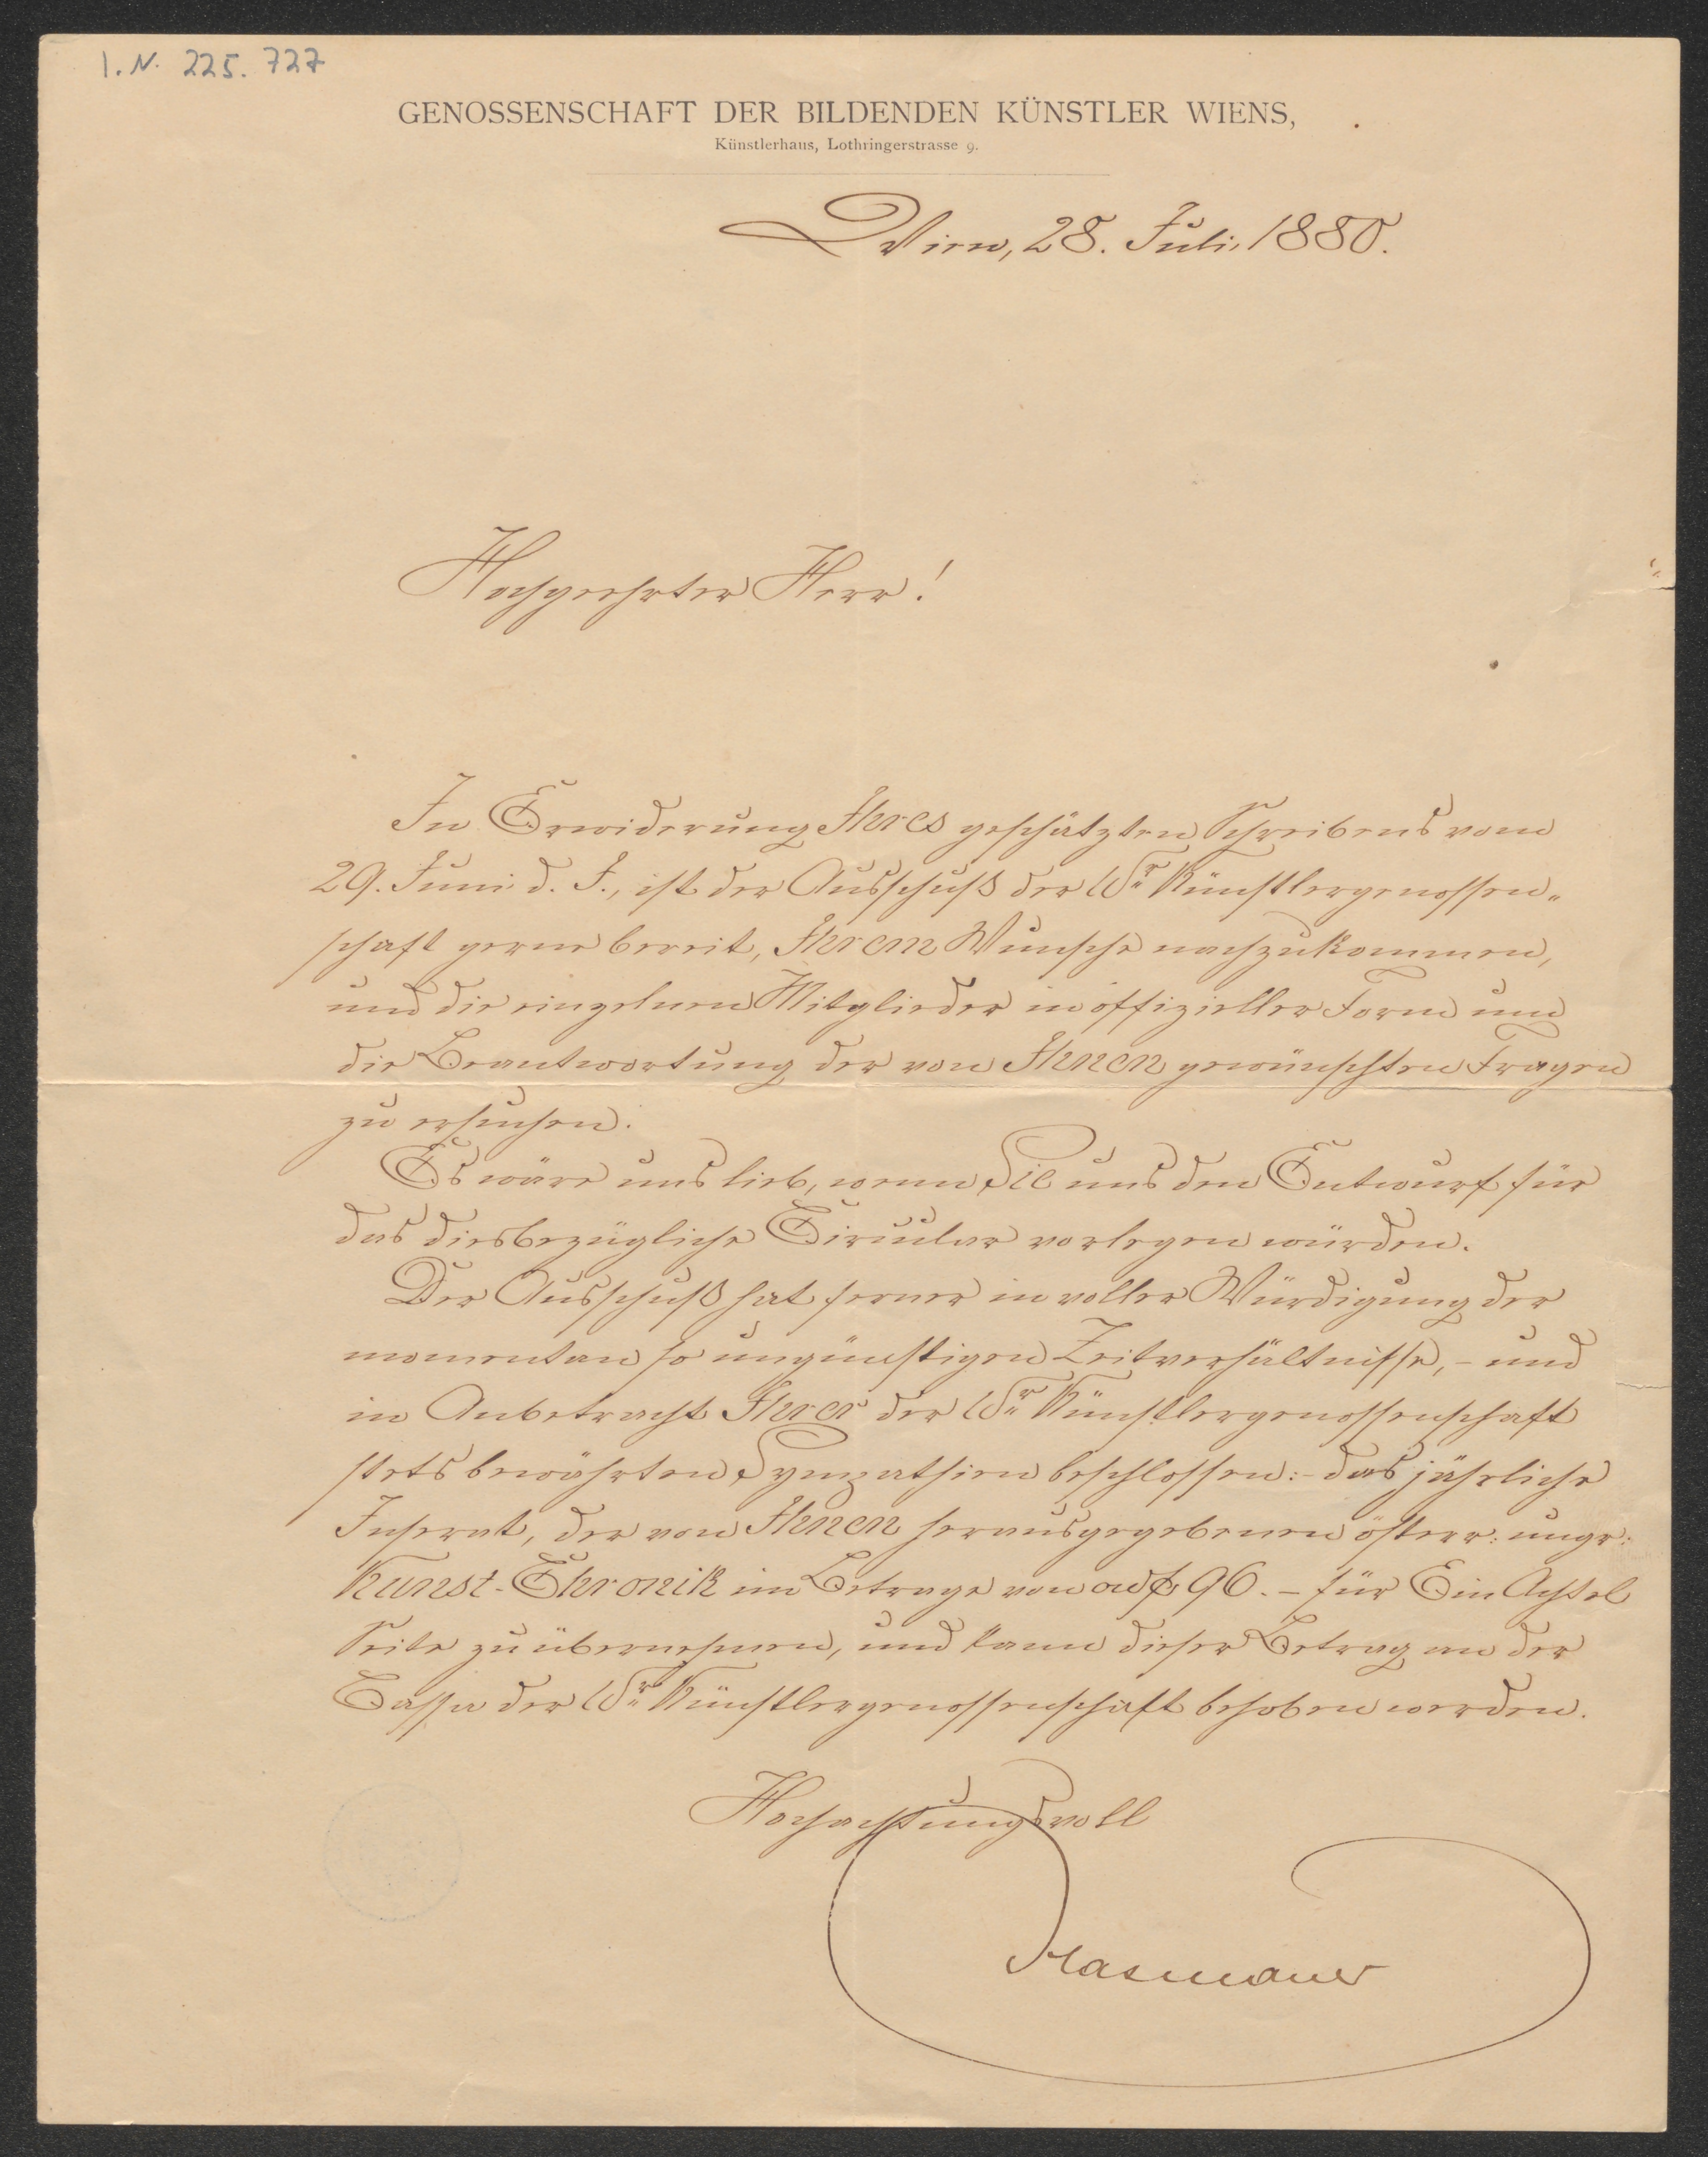 I. N. 225.727
GENOSSENSCHAFT DER BILDENDEN KÜNSTLER WIENS,
Künstlerhaus, Lothringerstrasse 9.
Wien, 28. Juli 1880.
Hochgeehrter Herr!
In Erwiderung Ihres geschätzten Schreibens vom
29. Juni d. J., ist der Ausschuß der Wr Künstlergenossen„
schaft gerne bereit, Ihrem Wunsche nachzukommen,
und die einzelnen Mitglieder in offizieller Form um
die Beantwortung der von Ihnen gewünschten Fragen
zu ersuchen.
Es wäre uns lieb, wenn Sie uns den Entwurf für
das diesbezügliche Circular vorlegen würden.
Der Ausschuß hat ferner in voller Würdigung der
momentan so ungünstigen Zeitverhältnisse, – und
in Anbetracht Ihrer der Wr Künstlergenossenschaft
stets bewährten Sympathien beschlossen: – das jährliche
Inserat, der von Ihnen herausgegebenen österr: ungr:
Kunst-Chronik im Betrage von 96. – für Ein Achtel
Seite zu übernehmen, und kann dieser Betrag an der
Cassa der Wr Künstlergenossenschaft behoben werden.
Hochachtungsvoll